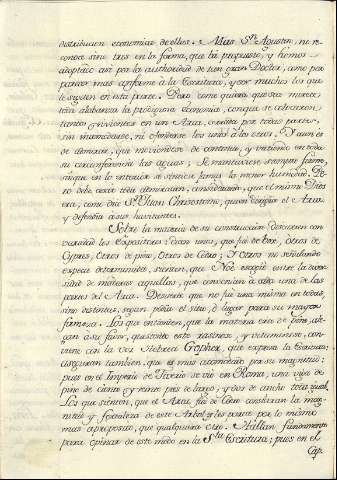 distribucion economica de ellos. Mas Sn. Agustin, no re
contra sino tres en la forma, que la propuesto, y hemos
adoptado asi por la authoridad de tan gran Doctor, como por
parecer mas conforme à la Escritura, y ser muchos los que
le siguen en esta parte. Pero como quiera que sea merece
toda alabanza la prodigiosa economia, con que se colocaron
tantos vivientes en un Arca, cerrada por todas partes,
sin incomodarse, ni ofenderse los unos à los otros. Y aun es
de admirar, que moviendose de continuo, y vatiendo en toda
su circunferencia las aguas; Se mantuviese siempre firme,
sin que en lo interior se sintiese jamas la menor humedad. Pe
ro debe cesar toda admiracion, considerando, que el mismo Dios
era, como dice Sn. Juan Chrisostomo, quien dirigia el Arca,
y defendia à sus havitantes.
Sobre la materia de su construccion discurren con
variedad los Expositores: dicen unos, que fue de Box, otros de
Cipres, Otros de pino, Otros de Cedro; Y Otros no señalando
especie determinada, sienten, que Noè escogiò entre la diver
sidad de maderas aquellas, que convenian à cada una de las
partes del Arca. De suerte que no fue una misma en todas,
sino distintas, segun pedia el sitio, ò lugar para su mayor
firmeza. Los que entienden, que la materia era de
gan a su favor, que sobre este resinoso, y vetuminoso, con
viene con la voz Hebrea Gopher, que expresa la Escritura:
aseguran tambien, que es mui acomodado por su magnitud:
pues en el Imperio de Tiverio se viò en Roma, una viga de
pino de ciento y veinte pies de largo, y dos de ancho toda igual.
Los que sienten, que el Arca fue de Cedro consideran la mag
nitud y fortaleza de este Arbol, y les parece por lo mismo
mas aproposito, que qualquiera otro. Hallan fundamento
para opinar de este modo en la Sta. Escritura; pues en el
Cap.